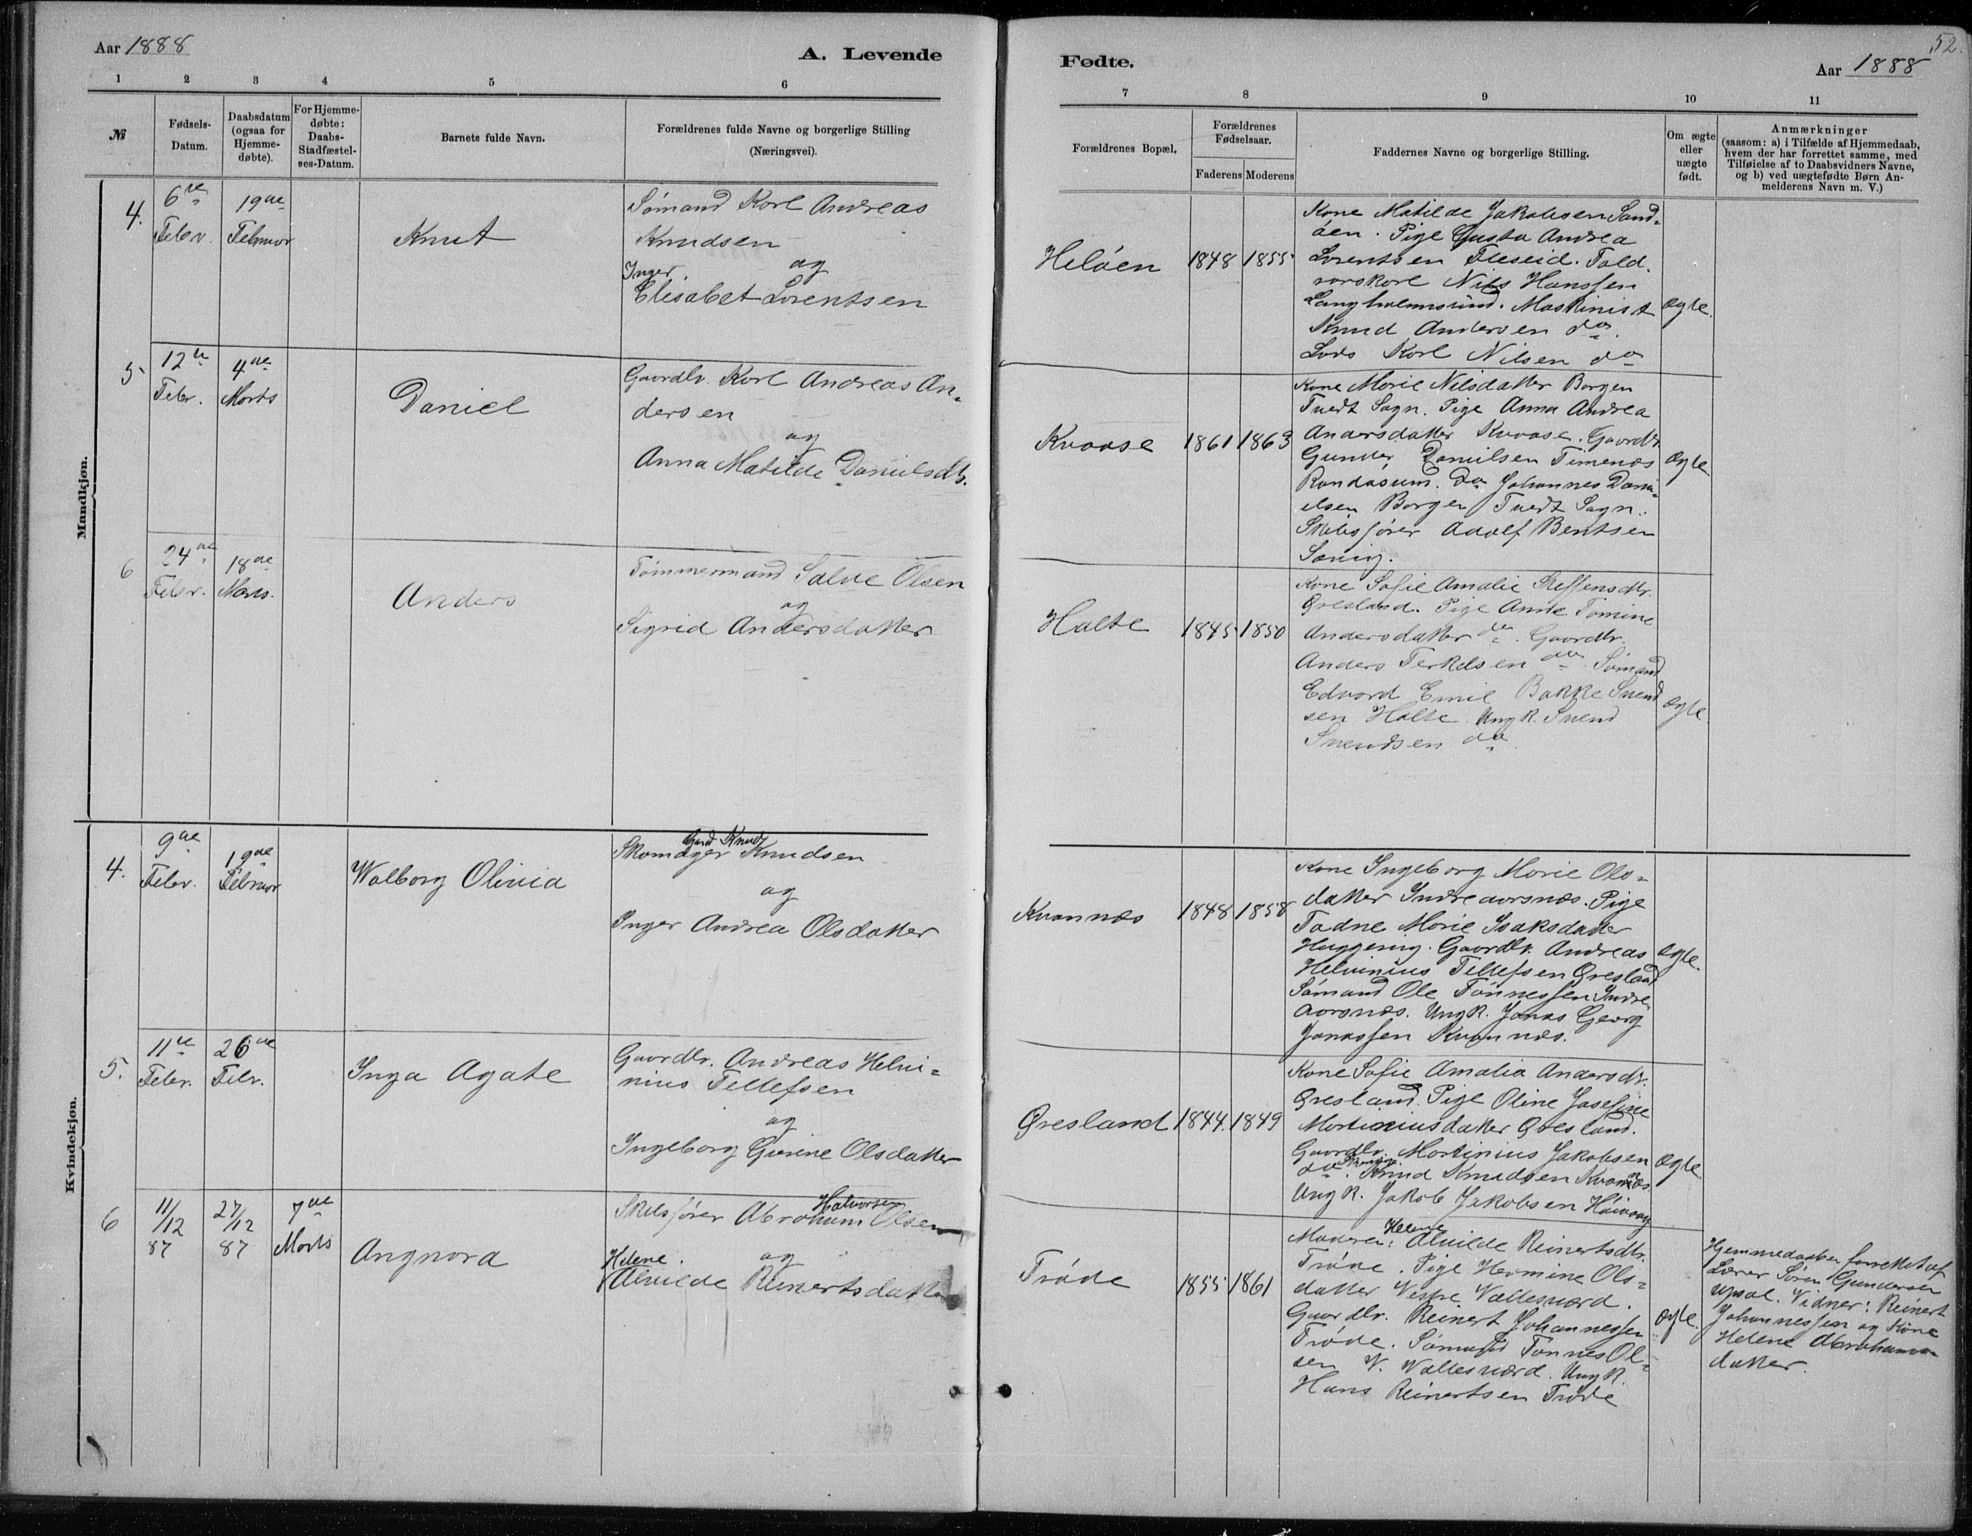 Aar 1888
A. Levende
1 2 3 4 5 6
№
Fødsels-
Datum.
Daabsdatum
(ogsaa for
Hjemme-
døbte).
For Hjemme-
døbte:
Daabs-
Stadfæstel-
ses-Datum.
Barnets fulde Navn.
Forældrenes fulde Navne og borgerlige Stilling
(Næringsvei).
Mandkjøn.
4.
6te
Febr.
19de
Februar
Knut
Sømand Karl Andreas
Knudsen
og
Inger
Elisabet Lorentsen
5
12te
Febr.
4de
Marts
Daniel
Gaardbr. Karl Andreas An-
dersen
og
Anna Matilde Danielsdtr.
6
24de
Febr.
18de
Marts.
Anders
Tømmermand Salve Olsen
og
Sigrid Andersdatter
Kvindekjøn.
4.
9de
Febr.
19de
Februar
Walborg Olivia
Knud
Skomager Knudsen
og
Inger Andrea Olsdatter
5.
11te
Febr.
26de
Febr.
Inga Agate
Gaardbr. Andreas Helvi-
nius Tellefsen
og
Ingeborg Gurine Olsdatter
6
11/12
87
27/12
87
7de
Marts
Angnora
Halvorsen
Skibsfører Abraham Olsen
og
Helene
Alvilde Reinertsdatter
52.
Fødte.
Aar 1888
7 8 9 10 11
Forældrenes Bopæl.
Forældrenes
Fødselsaar.
Faderens Moderens
Faddernes Navne og borgerlige Stilling.
Om ægte
eller
uægte
født.
Anmærkninger
(saasom: a) i Tilfælde af Hjemmedaab,
hvem der har forrettet samme, med
Tilføielse af to Daabsvidners Navne,
og b) ved uægtefødte Børn An-
melderens Navn m. V.)
Heløen
1848 1855
Kone Matilde Jakobsen Sand-
øen. Pige Gusta Andrea
Lorentsen Fleseid. Told-
rorskarl Nils Hanssen
Langholmsund. Maskinist
Knud Andersen do.
Lods Karl Nilsen do
Ægte.
Kvaase
1861 1863
Kone Marie Nilsdatter Borgen
Tvedt Sogn. Pige Anna Andrea
Andersdatter Kvaase. Gaardbr.
Gunder Danielsen Timenæs
Randøsund. do Johannes Dani-
elsen Borgen Tvedt Sogn.
Skibsfører Adolf Bentsen
Ægte
Halte
1845 1850
Kone Sofie Amalie Steffensdtr.
Øresland. Pige Anne Tomine
Andersdatter do. Gaardbr.
Anders Terkelsen do. Sømand
Edvard Emil Bakke Svend
sen Halte. Ung R. Svend
Svendsen do.
Ægte
Kvannæs
1848 1858
Kone Ingeborg Marie Ols-
datter Indre aarsnæs. Pige
Tadne Marie Isaksdatter
Huggevig. Gaardbr. Andreas
Helvinius Tellefsen Øresland
Sømand Ole Tønnessen Indre
Aarsnæs. Ung R. Jonas Georg
Jonassen Kvannæs.
Ægte.
Øresland
1844. 1849
Kone Sofie Amalia Andersdtr.
Øresland. Pige Oline Josefine
Martiniusdatter Øresland.
Gaardbr. Martinius Jakobsen
do. Knud Knudsen Kvannæs.
Ung R. Jakob Jakobsen Høivaag
Ægte
Trøde
1855 1861
Helene
Moderen: Alvilde Reinertsdtr.
Trøde. Pige Hermine Ols-
datter Vestre Vallesværd.
Gaardbr. Reinert Johannessen
Trøde. Sømand Tønnes Ol-
sen V. Vallesværd. Ung R.
Hans Reinertsen Trøde
Ægte.
Hjemmedaaben forrettet af
Lærer Søren Gundersen
Upsal. Vidner: Reinert
Johannessen og Kone
Helene Abrahams-
datter.